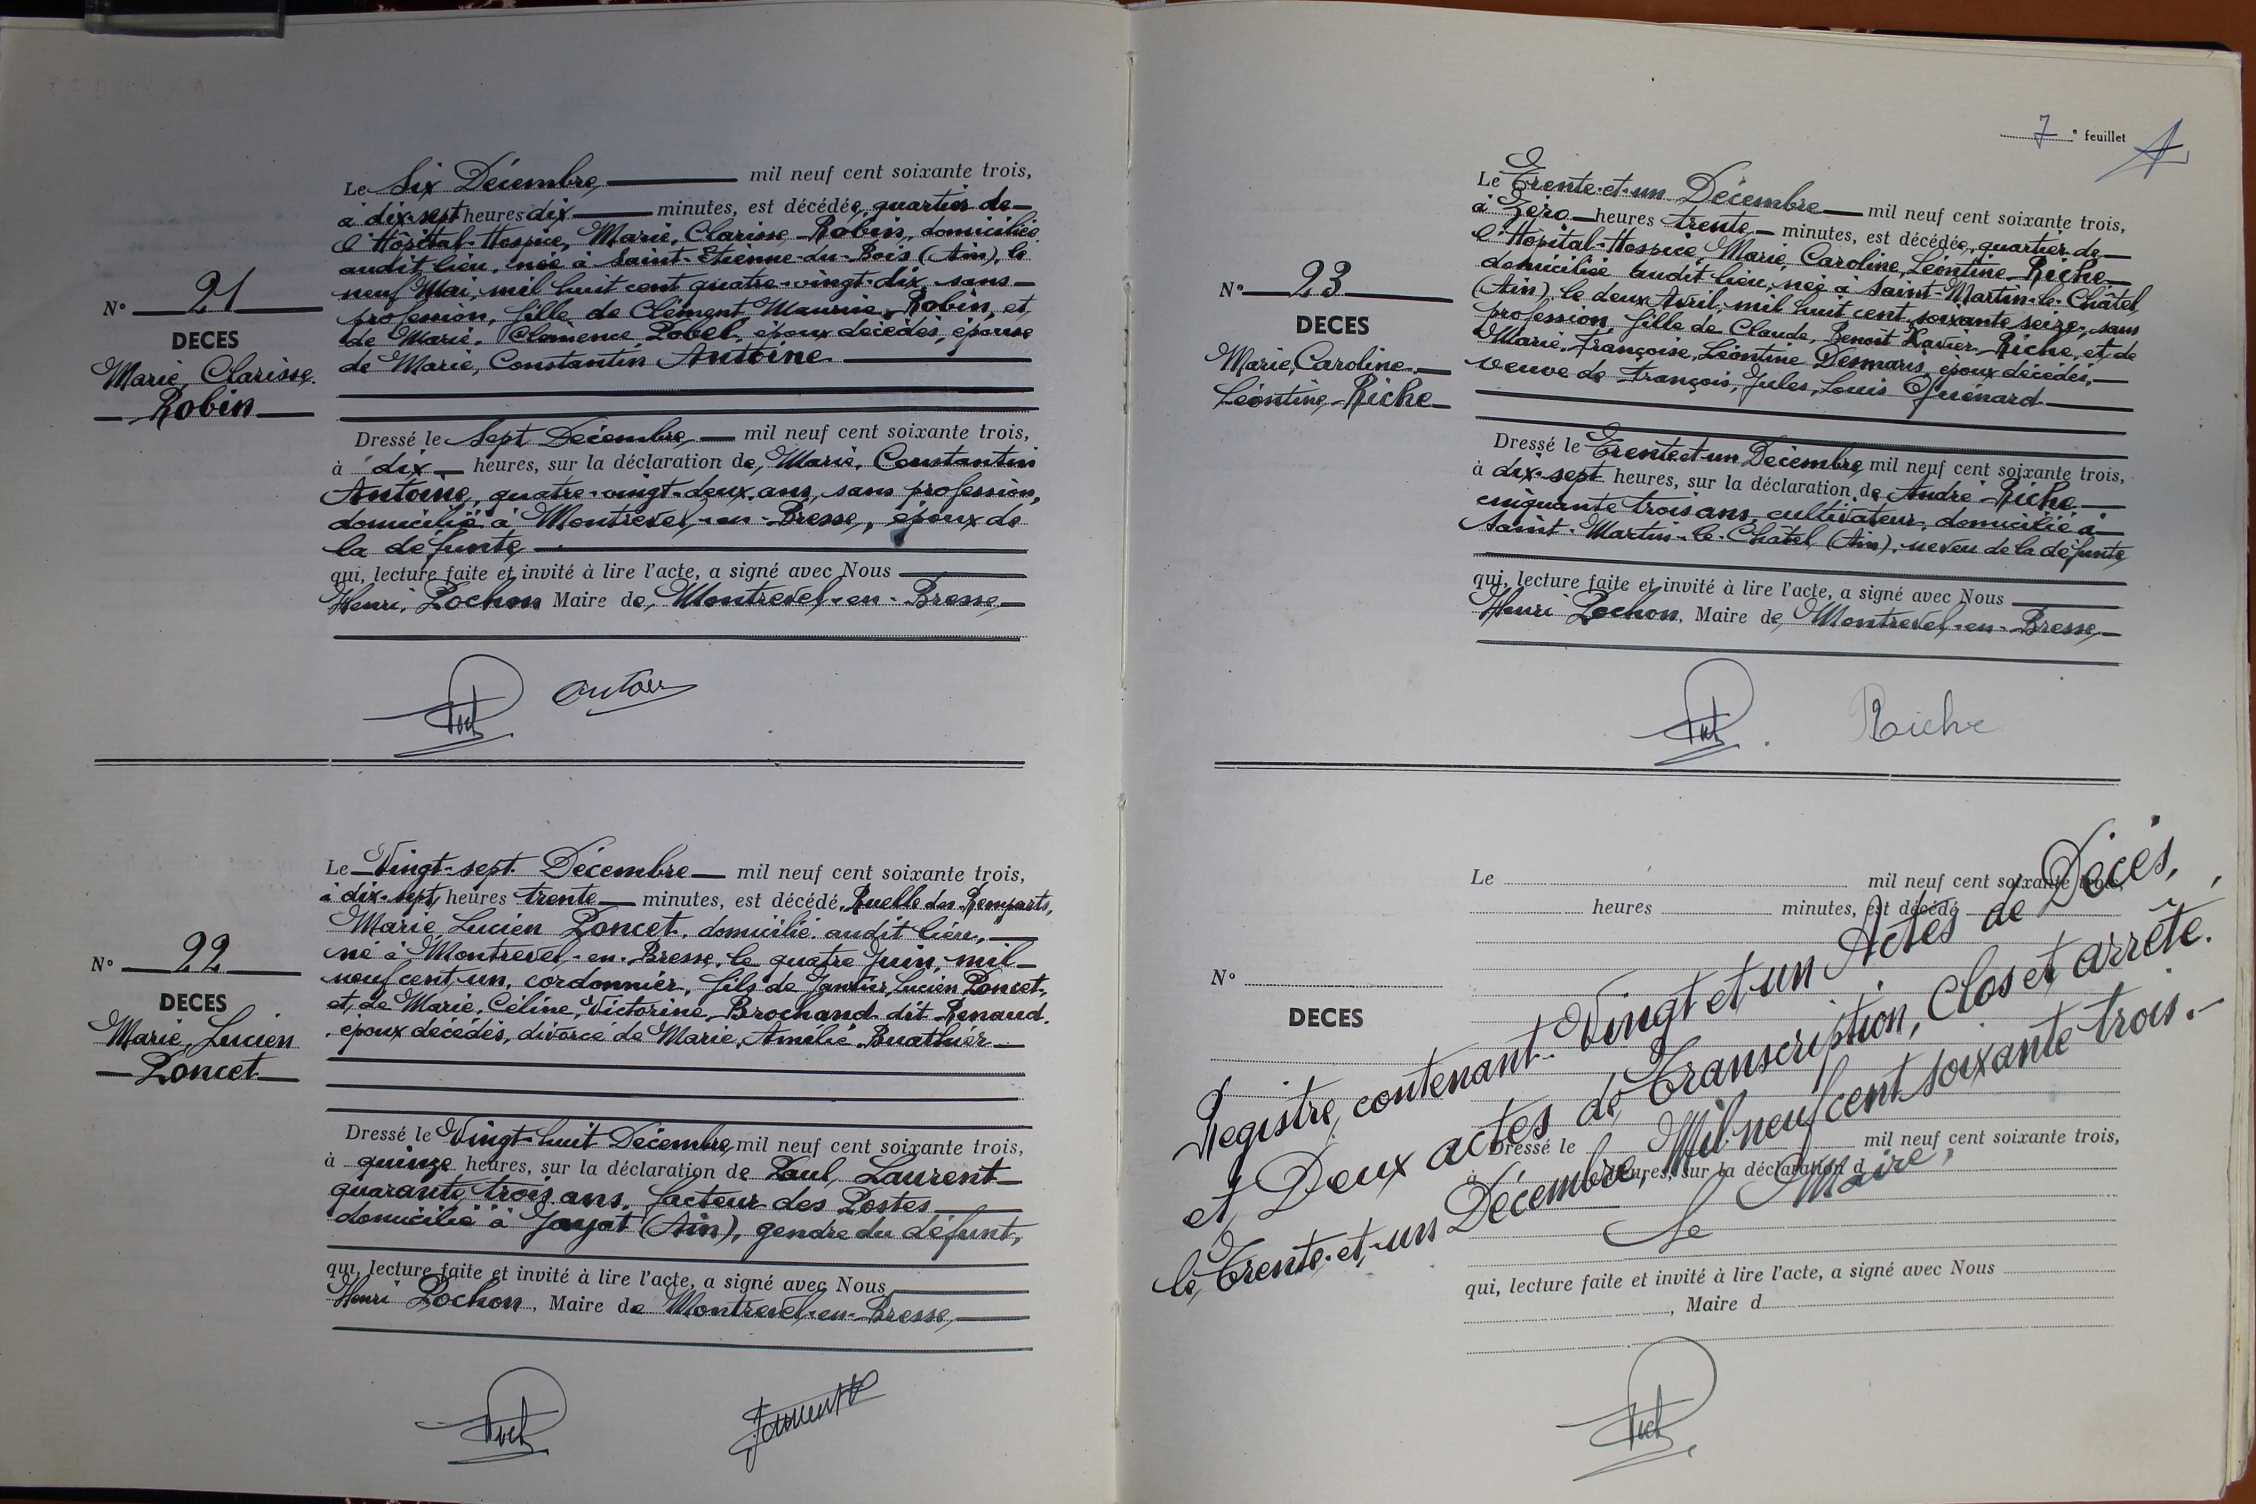 Le Six Décembre, mil neuf cent soixante trois,
à dix-sept heures dix minutes, est décédée, quartier de
l'Hôpital-Hospice, Marie, Clarisse Robin, domiciliée
audit lieu, née à Saint-Etienne-du-Bois (Ain), le
neuf Mai, mil huit cent quatre-vingt-dix, sans
profession, fille de Clément Maurice Robin, et
de Marie, Clémence Pobel, époux décédés, épouse
de Marie, Constantin Antoine
N° 21
DECES
Marie, Clarisse
Robin
Dressé le Sept Décembre, mil neuf cent soixante trois,
à dix heures, sur la déclaration de, Marie, Constantin
Antoine, quatre-vingt-deux ans, sans profession,
domicilié à Montrevel-en-Bresse, époux de
la défunte,
qui, lecture faite et invité à lire l'acte, a signé avec Nous
Henri, Pochon Maire de, Montrevel-en-Bresse,
Le Vingt-sept Décembre mil neuf cent soixante trois,
à dix-sept heures trente minutes, est décédé, Ruelle des Remparts,
Marie, Lucien Poncet, domicilié audit lieu,
né à Montrevel-en-Bresse, le quatre Juin, mil
neuf cent un, cordonnier, fils de Janvier, Lucien Poncet,
et, de Marie, Céline, Victorine, Brochand dit Renaud,
époux décédés, divorcé de Marie, Amélie, Buathier
N° 22
DECES
Marie, Lucien
Poncet
Dressé le Vingt-huit Décembre, mil neuf cent soixante trois,
à quinze heures, sur la déclaration de Paul, Laurent
quarante trois ans, facteur des Postes
domicilié à Jayat (Ain), gendre du défunt,
qui, lecture faite et invité à lire l'acte, a signé avec Nous
Henri Pochon, Maire de Montrevel-en-Bresse,
7e feuillet
Le Trente-et-un Décembre mil neuf cent soixante trois,
à Zéro heures trente, minutes, est décédée, quartier de
l'Hôpital-Hospice, Marie, Caroline, Léontine Riche
domiciliée audit lieu, née à Saint-Martin-le-Châtel
(Ain), le deux Avril, mil huit cent soixante seize, sans
profession, fille de Claude, Benoît Xavier Riche, et de
Marie, Françoise, Léontine Desmaris, époux décédés,
veuve de François, Jules, Louis Guénard
N° 23
DECES
Marie, Caroline
Léontine Riche
Dressé le Trente et un Décembre, mil neuf cent soixante trois,
à dix-sept heures, sur la déclaration de André Riche
cinquante trois ans, cultivateur, domicilié à
Saint-Martin-le-Châtel (Ain), neveu de la défunte,
qui, lecture faite et invité à lire l'acte, a signé avec Nous
Henri Pochon, Maire de, Montrevel-en-Bresse,
Riche
Le mil neuf cent soixante trois,
heures minutes, est décédé
N°
DECES
Registre, contenant Vingt et un Actes de Décès,
et, Deux actes de Transcription, Clos et arrêté,
le, Trente-et-un Décembre, Mil neuf cent soixante trois.
Le Maire,
Dressé le mil neuf cent soixante trois,
à heures, sur la déclaration d
qui, lecture faite et invité à lire l'acte, a signé avec Nous
, Maire d